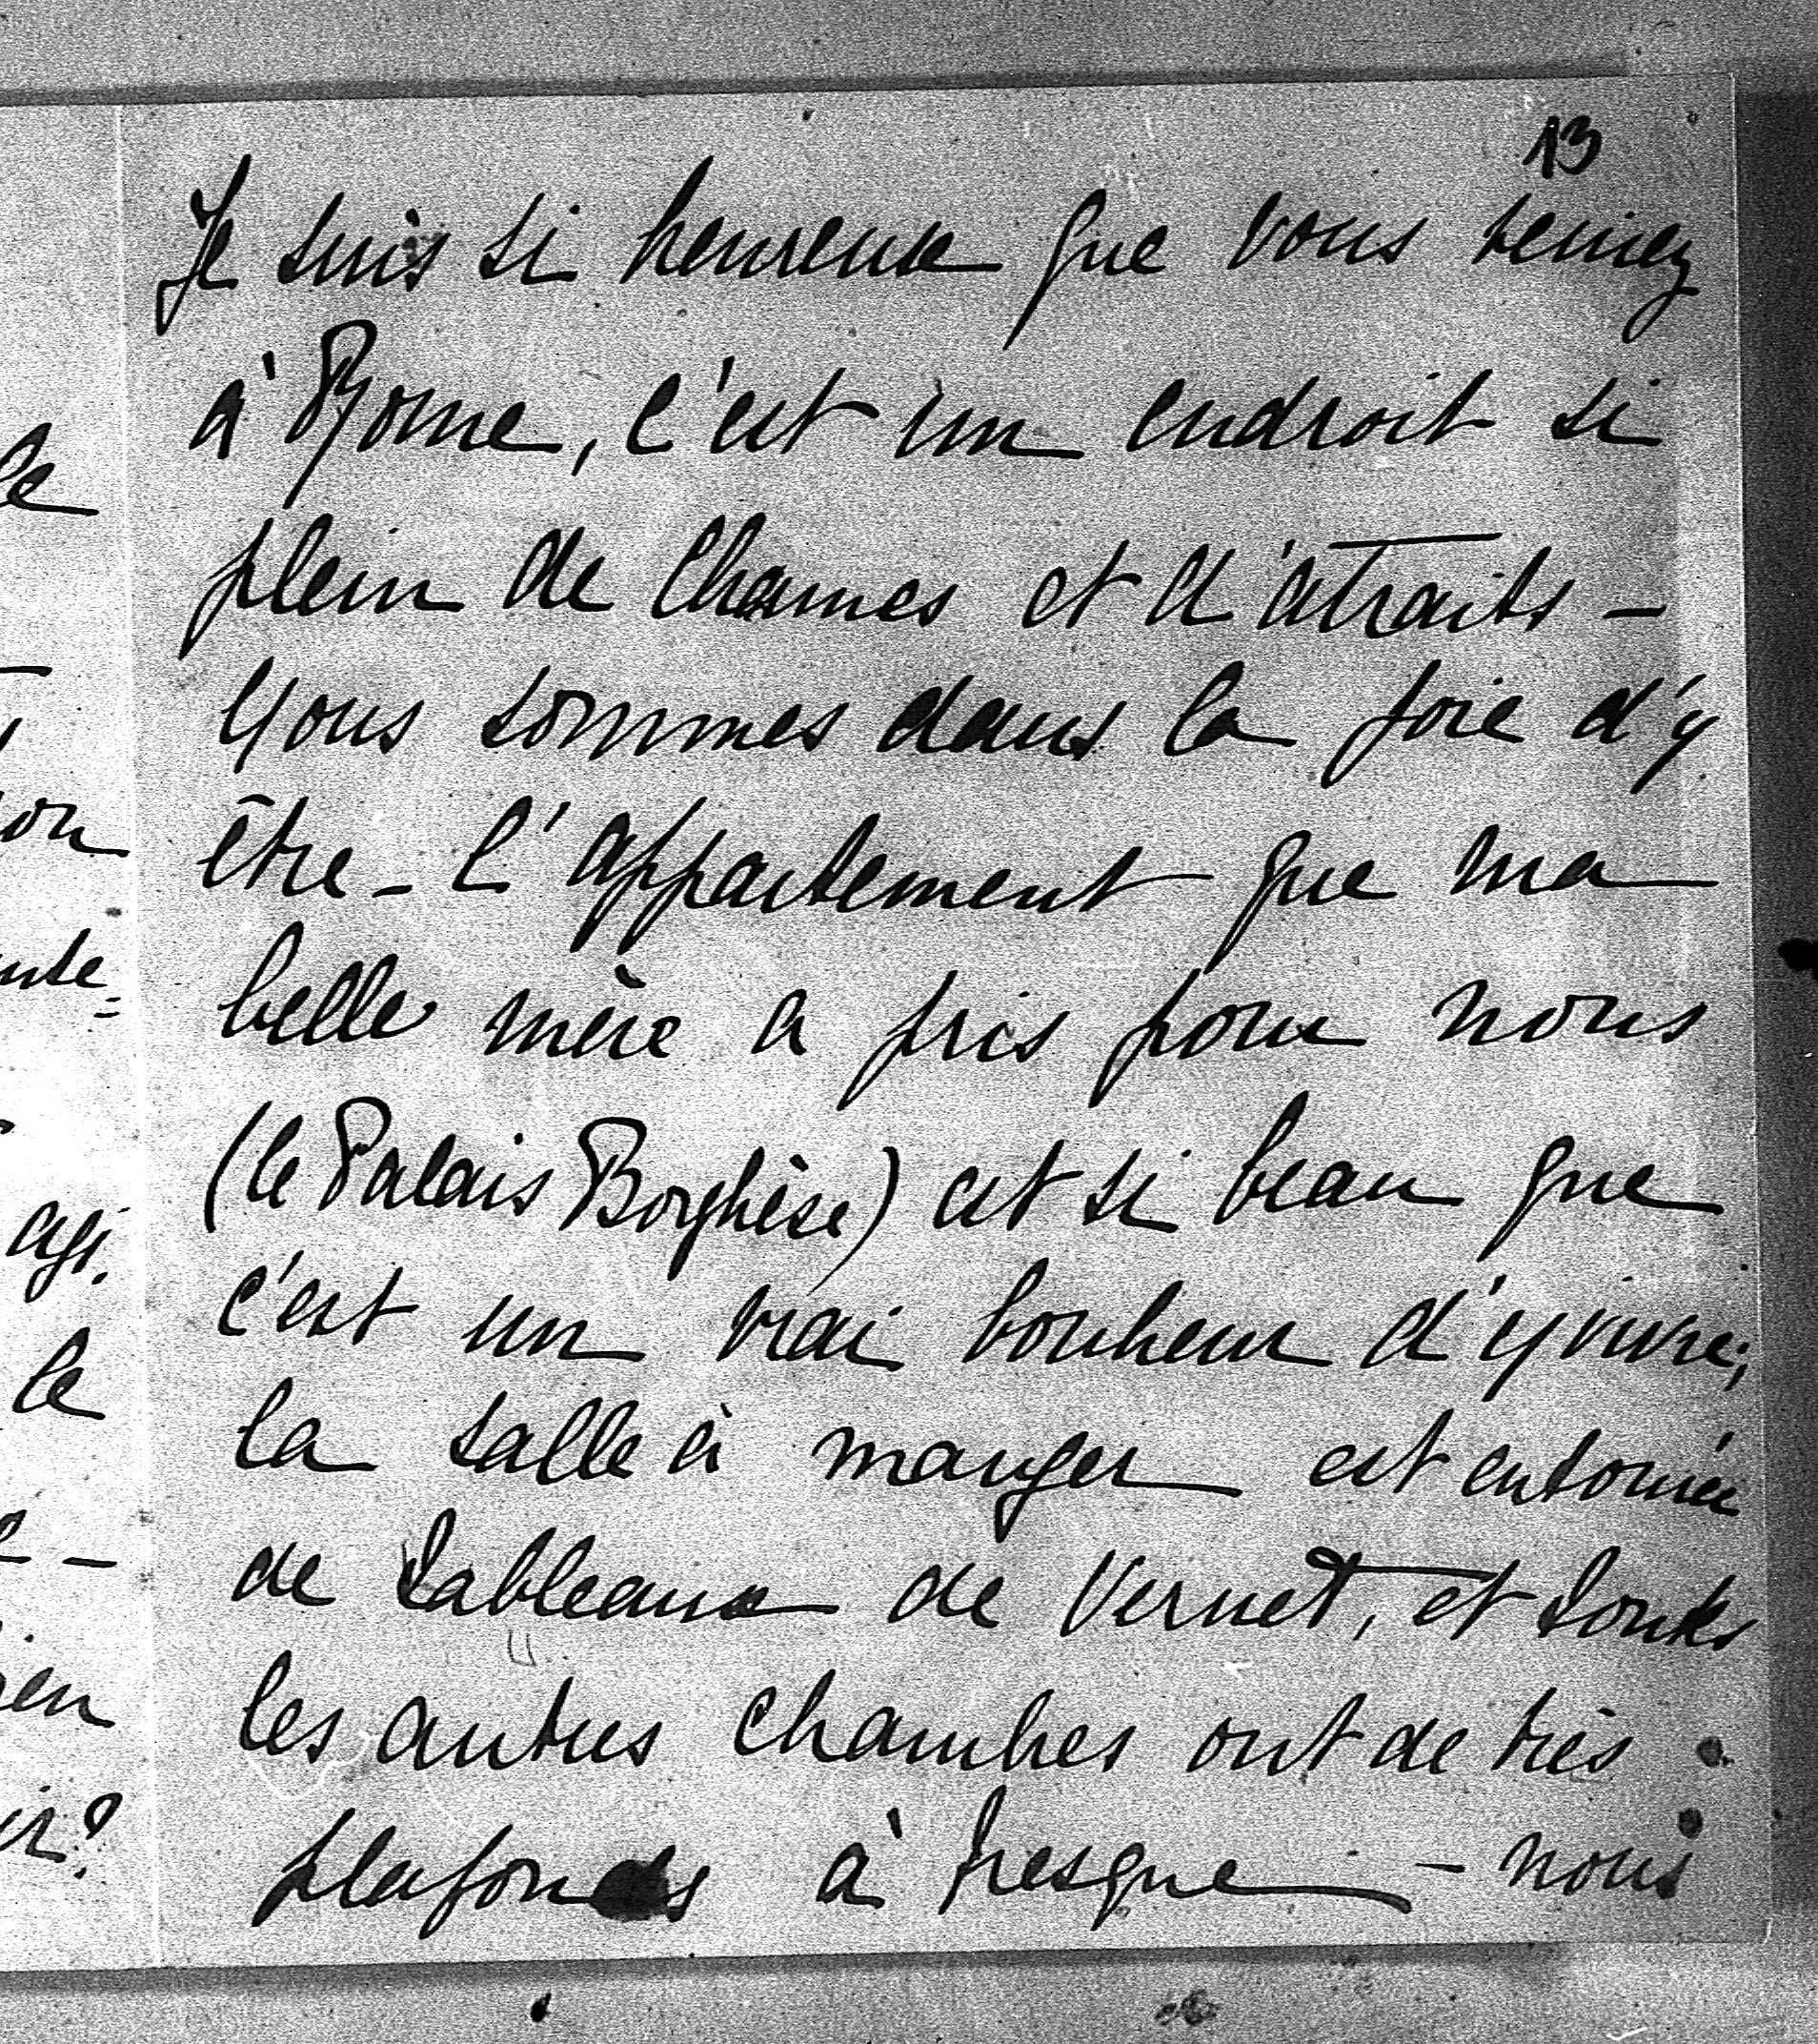 13
Je suis si heureuse que vous veniez
à Rome, c'est un endroit si
plein de charmes et d'atraits -
Nous sommes dans la joie d'y
être - L'appartement que ma
belle mère a pris pour nous
(le Palais Borghèse) est si beau que
c'est un vrai bonheur d'y vivre;
la salle à manger est entourée
de tableaux de Vernet, et toutes
les autres chambres ont de très
plafonds à fresque - nous
le
on
nte=
agi.
le
-
ien
ir?